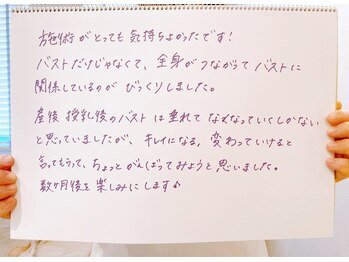 施術がとっても気持ちよかったです!
バストだけじゃなくて、全身がつながってバストに
関係しているのがびっくりしました。
産後授乳後のバストは垂れてなくなっていくしかない
と思っていましたが、キレイになる,変わっていけると
言ってもらって、ちょっとがんばってみようと思いました。
数ヶ月後を楽しみにします♪